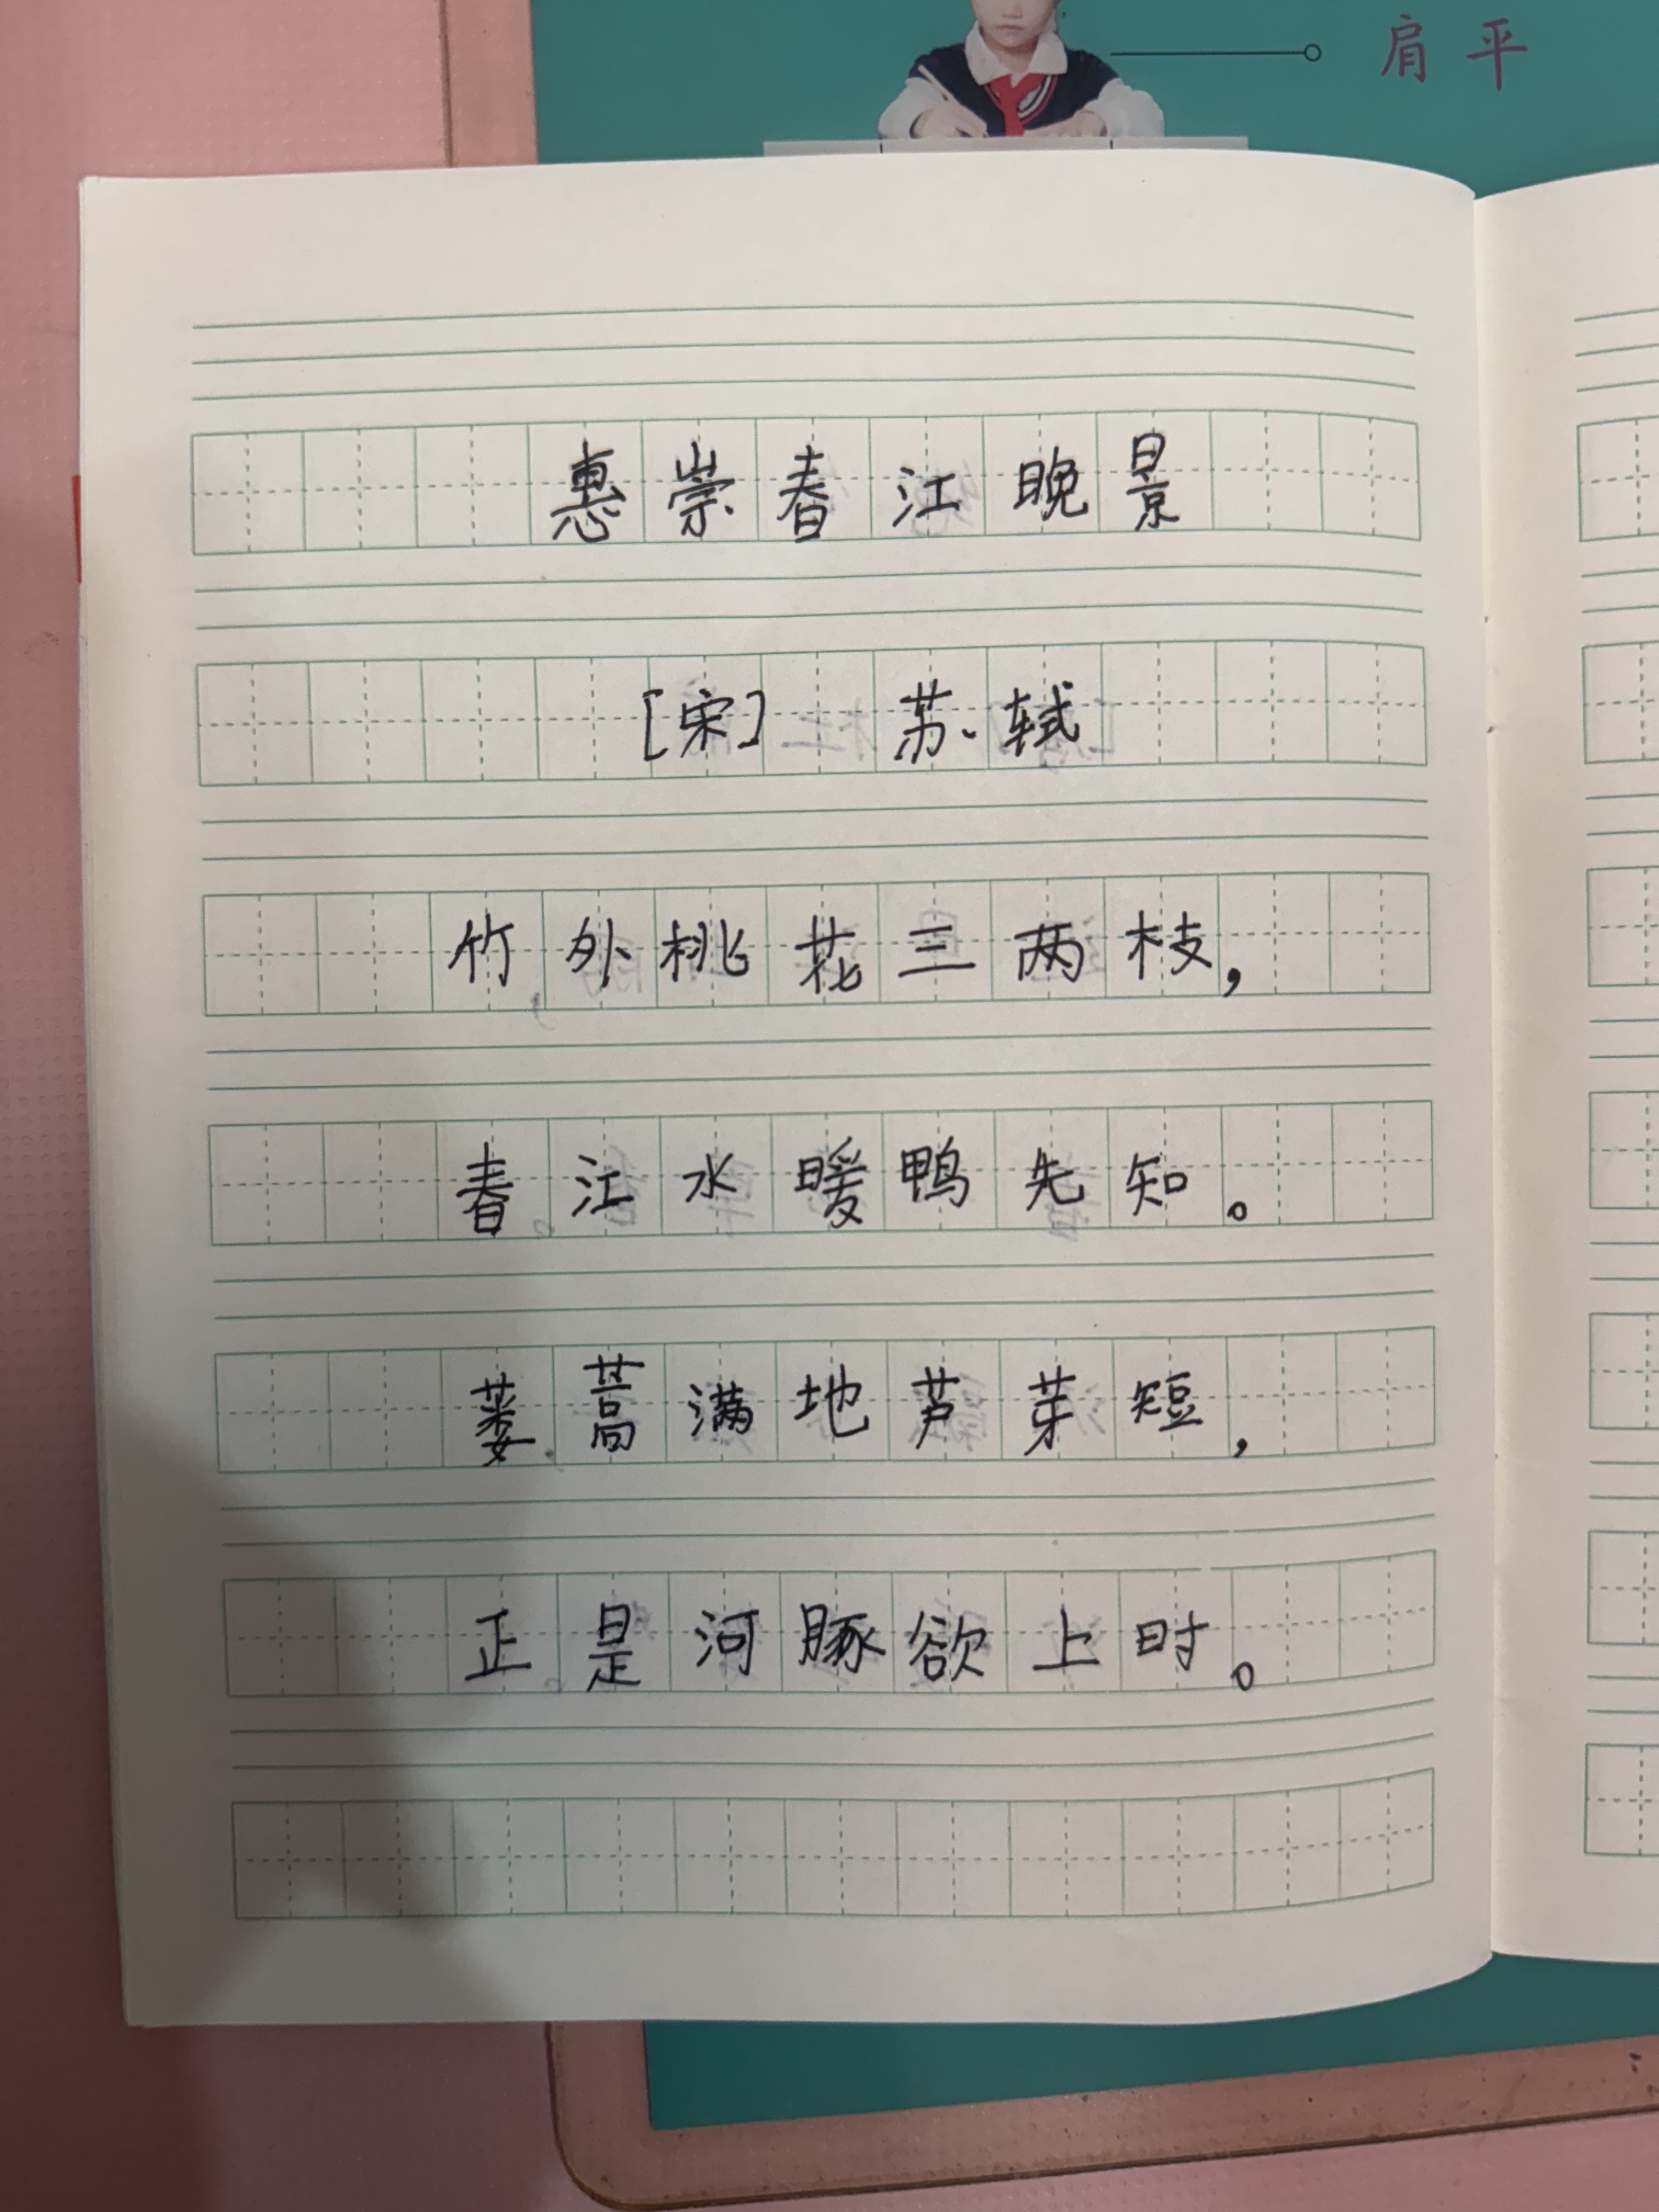 肩平
惠崇春江晚景
[宋] 苏轼
竹外桃花三两枝，
春江水暖鸭先知。
蒌蒿满地芦芽短，
正是河豚欲上时。